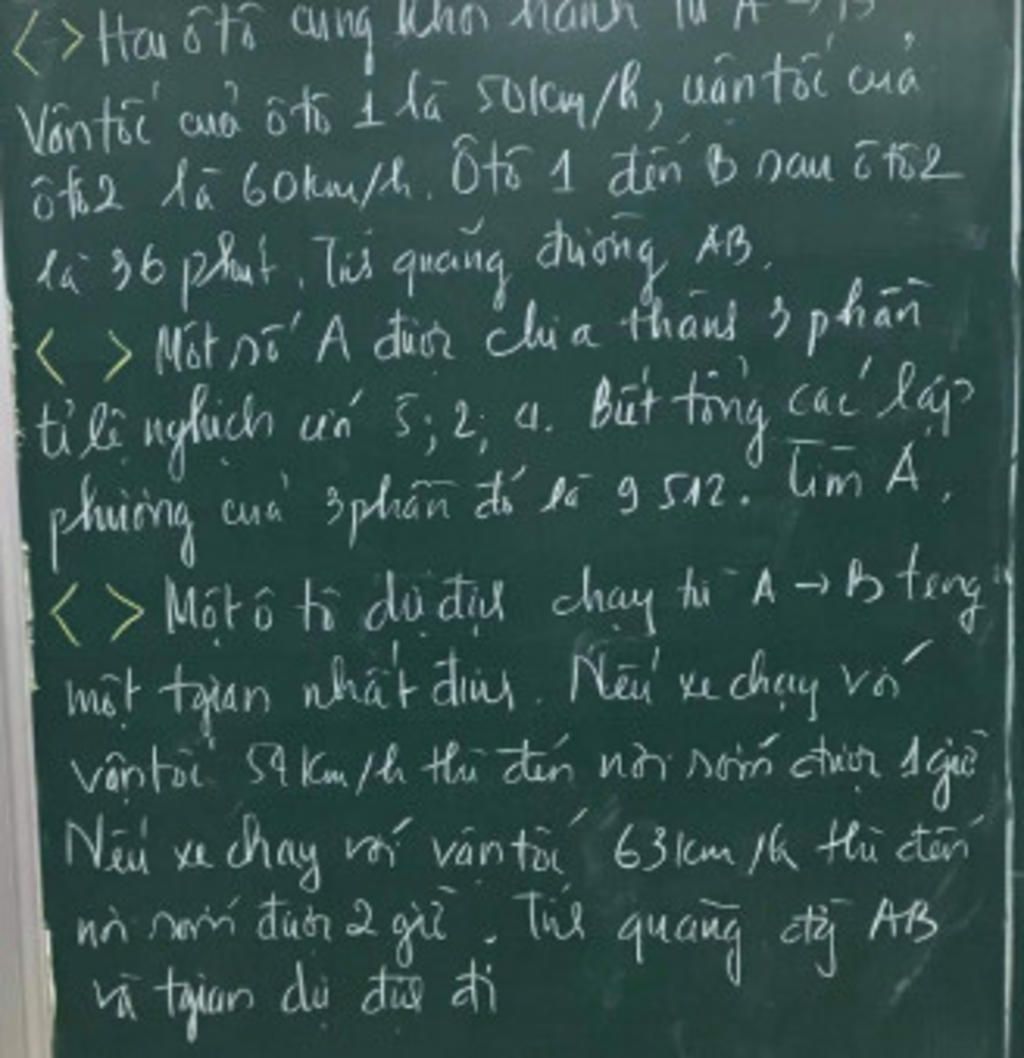 <> Hai ôtô cùng khởi hành từ A → B
Vận tốc của ôtô 1 là 50km/h, vận tốc của
ôtô2 là 60km/h. Ôtô 1 đến B sau ôtô2
là 36 phút. Tính quãng đường AB.
< > Một số A được chia thành 3 phần
tỉ lệ nghịch với 5; 2; 4. Biết tổng các lập
phương của 3 phần đó là 9512. Tìm A.
< > Một ô tô dự định chạy từ A → B tong
một tgian nhất định. Nếu xe chạy với
vận tốc 54 km/h thì đến nơi sớm được 1 giờ
Nếu xe chạy với vận tốc 63km/h thì đến
nơi sớm được 2 giờ. Tính quãng đg AB
và tgian dự định đi